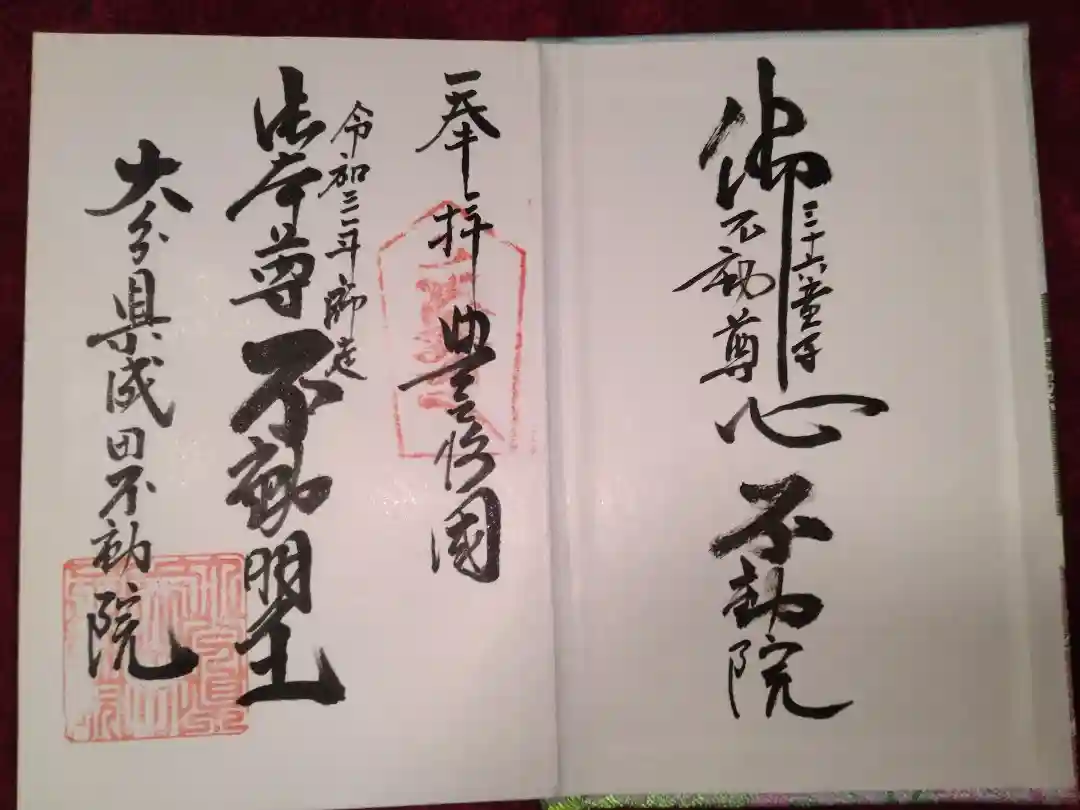 佛心 不動院
三十六童子
不動尊
奉拝 豊後國
令和三年師走
御本尊 不動明王
大分県成田不動院